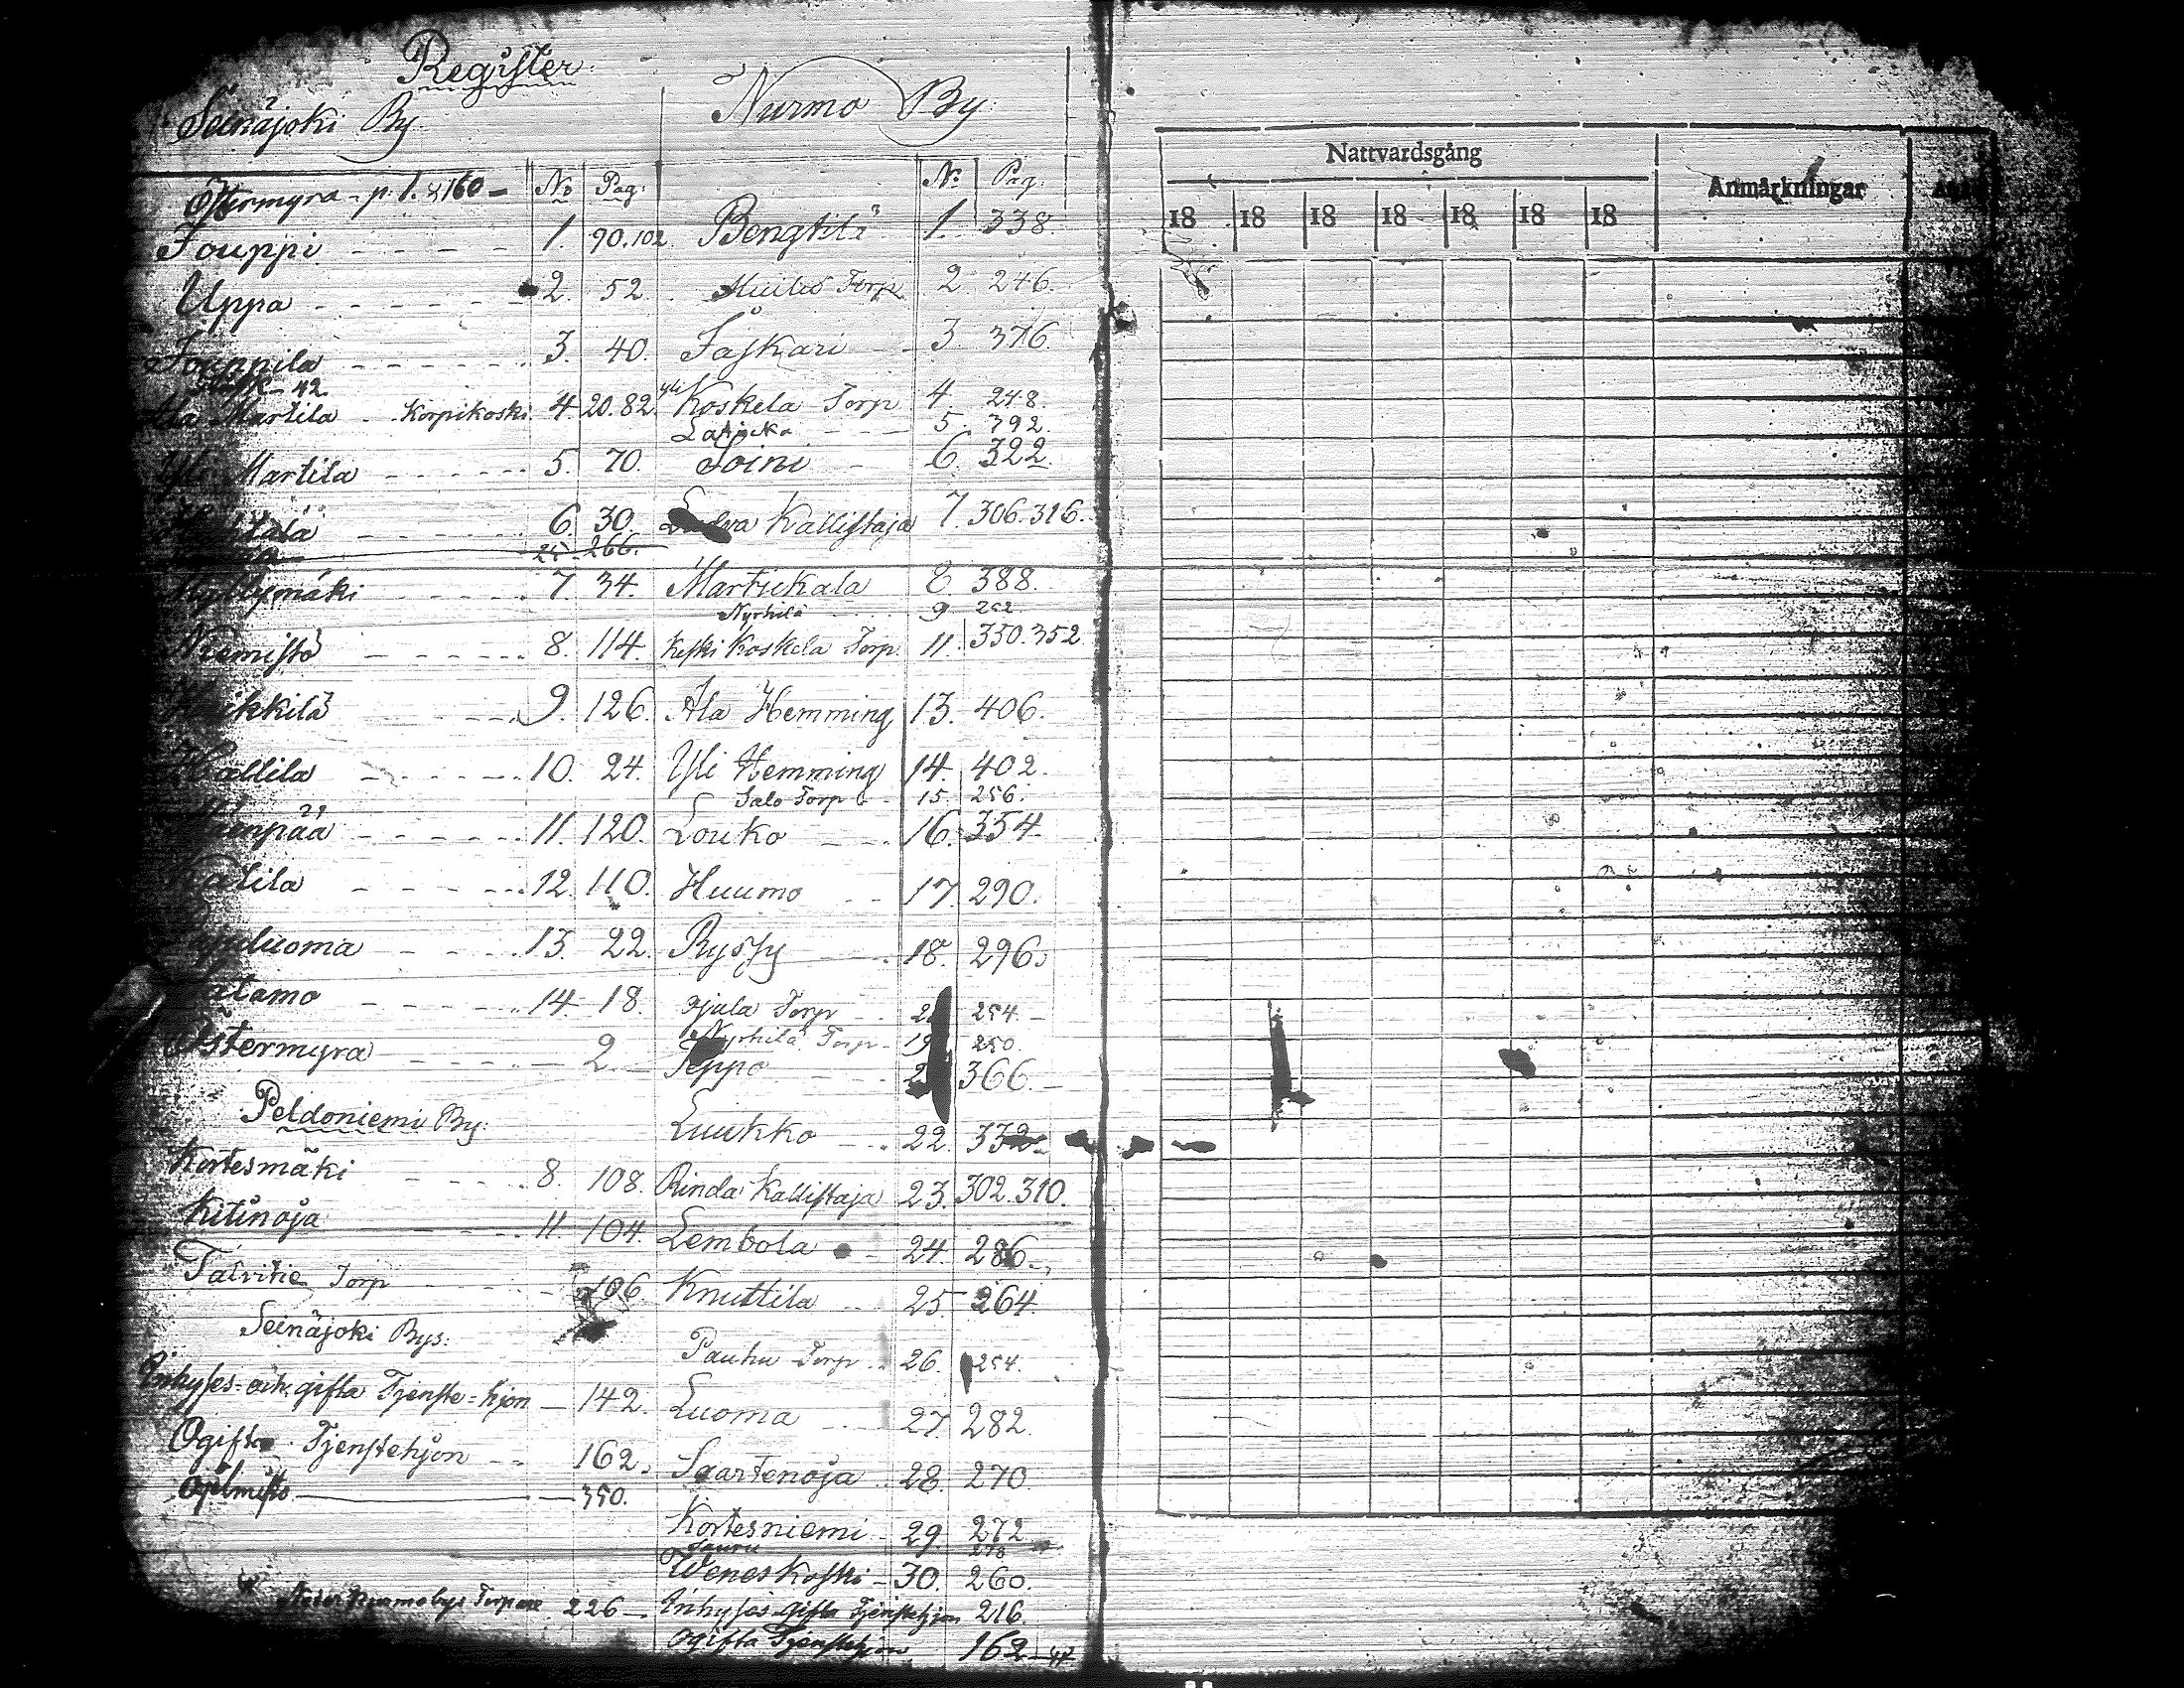 Register
Seinäjoki By
Östermyra - p. 1. & 160 - No Pag:
Jouppi 1. 90.102
Uppa 2. 52.
Jouppila 3. 40.
42.
Ala Martila Korpikoski 4. 20.82
Yli Martila 5. 70.
6. 30.
25 266.
Myllymäki 7. 34.
Niemistö 8. 114.
9. 126.
Hallila 10. 24.
11. 120.
Katila 12. 110.
13. 22.
14. 18.
Östermyra 2.
Peldoniemi By:
Kortesmäki 8. 108.
Kitinoja 11. 104.
Talvitie Torp 106
Seinäjoki Bys:
Inhyses- och gifta Tjenste-hjon 142.
Ogifta Tjenstehjon 162.
350.
Nurmobys Torpare 226
Nurmo By:
No. Pag:
Bengtilä 1. 338.
Torp 2 246.
Jåskari 3. 376.
yli Koskela Torp 4. 248.
5. 392.
Soini 6. 322.
Kallistaja 7. 306.316.
Martickala 8 388.
Nyrhilä 9. 252.
Keski Koskela Torp 11. 350.352
Ala Hemming 13. 406.
Yli Hemming 14. 402.
Salo Torp 15. 256.
Louko 16. 354.
Huumo 17. 290.
Ryssy 18. 296.
Torp 254.
Nyrhilä Torp 19 250.
Seppo 366.
Luukko 22. 332
Rinda Kallistaja 23. 302.310.
Lembola 24. 286
Knuttila 25 264
Pauhu Torp 26. 254.
Luoma 27 282.
Saartenoja 28. 270
Kortesniemi 29. 272
Weneskoski 30. 260.
Inhyses gifta Tjenstehjon 216.
Ogifta Tjenstehjon 162
Nattvardsgång
Anmärkningar
18 18 18 18 18 18 18